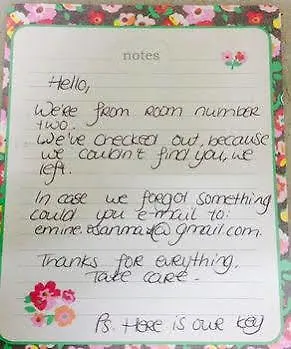 notes
Hello,
We're from room number
two.
We've checked out, because
we couldn't find you, we
left.
In case we forgot something
could you e-mail to:
gmail.com.
Thanks for everything.
Take care.
Ps. Here is our key